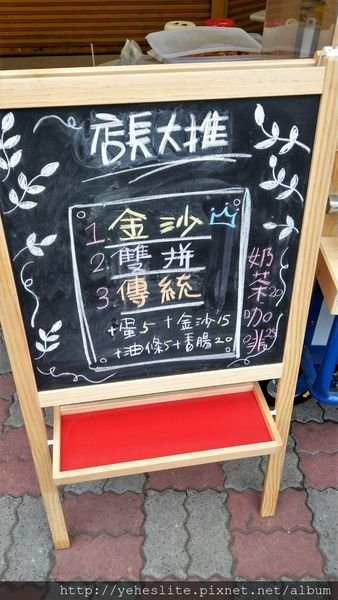 店長大推
1. 金沙
2. 雙拼
3. 傳統
+蛋5 +金沙15
+油條5+香腸20
奶茶20
咖啡25
http://yeheslite.pixnet.net/album